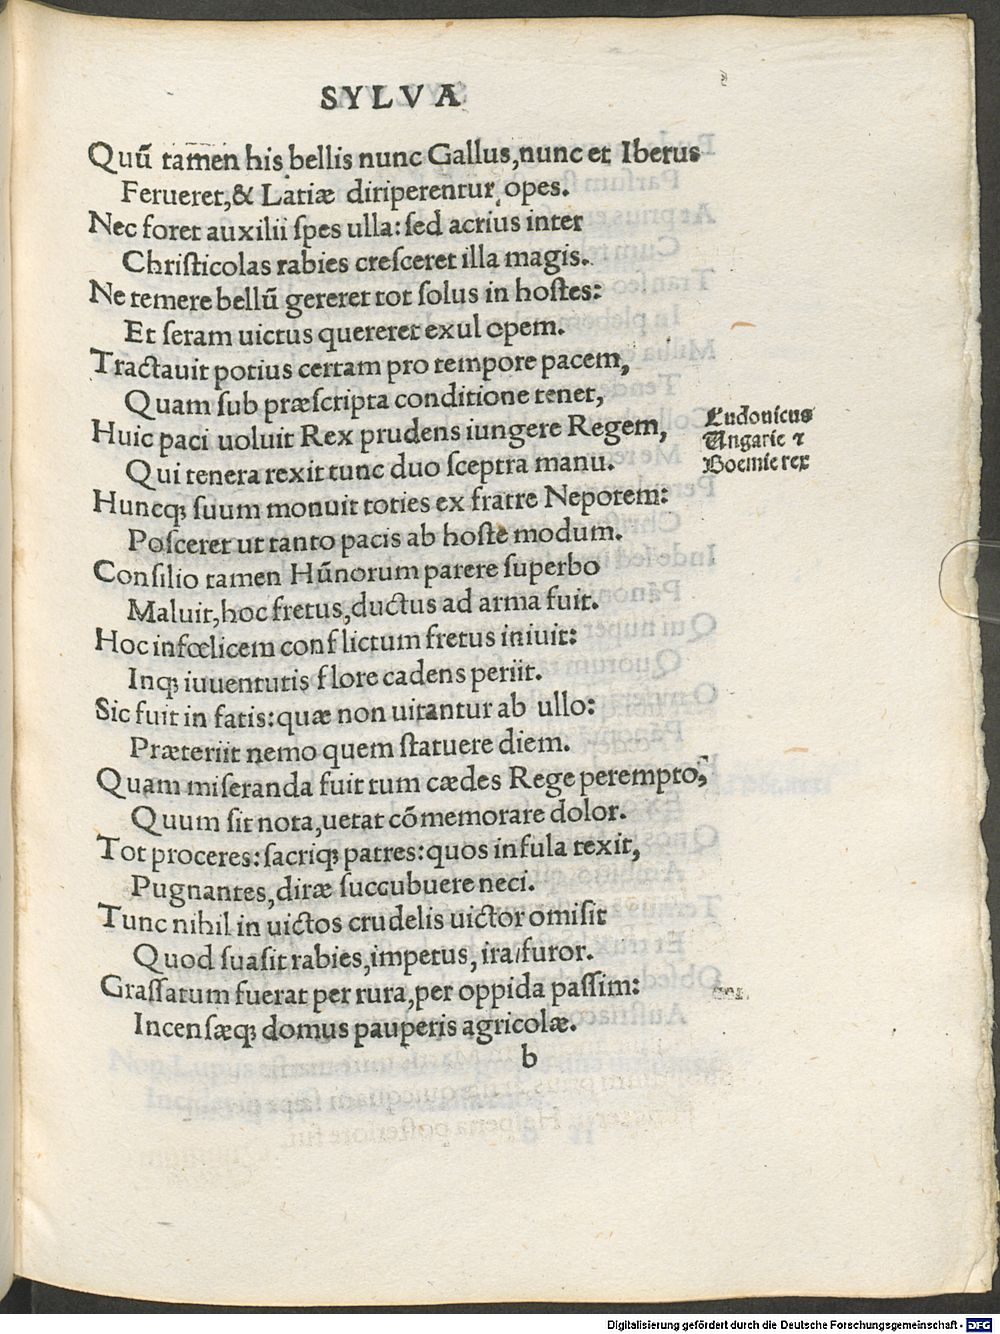 SYLVA
Quū tamen his bellis nunc Gallus,nunc et Iberus
Ferueret,& Latiæ diriperentur opes.
Nec foret auxilii ſpes ulla: ſed acrius inter
Chriſticolas rabies creſceret illa magis.
Ne temere bellū gereret tot ſolus in hoſtes:
Et ſeram uictus quereret exul opem.
Tractauit potius certam pro tempore pacem,
Quam ſub præſcripta conditione tenet,
Huic paci uoluit Rex prudens iungere Regem,
Qui tenera rexit tunc duo ſceptra manu.
Ludouicus
Ungarie ꝛ
Boemie rex
Huncq; ſuum monuit toties ex fratre Nepotem:
Poſceret ut tanto pacis ab hoſte modum.
Conſilio tamen Hūnorum parere ſuperbo
Maluit, hoc fretus,ductus ad arma fuit.
Hoc infœlicem conflictum fretus iniuit:
Inq; iuuentutis flore cadens periit.
Sic fuit in fatis: quæ non uitantur ab ullo:
Præteriit nemo quem ſtatuere diem.
Quam miſeranda fuit tum cædes Rege perempto,
Quum ſit nota,uetat cōmemorare dolor.
Tot proceres: ſacriq; patres: quos infula texit,
Pugnantes, diræ ſuccubuere neci.
Tunc nihil in uictos crudelis uictor omiſit
Quod ſuaſit rabies,impetus, ira/furor.
Graſſatum fuerat per rura,per oppida paſſim:
Incenſæq; domus pauperis agricolæ.
b
Digitalisierung gefördert durch die Deutsche Forschungsgemeinschaft - DFG